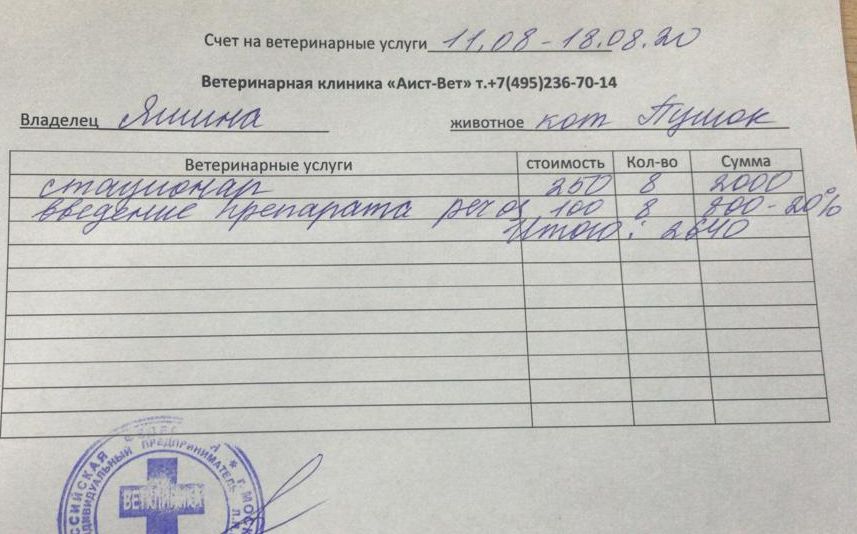 Счет на ветеринарные услуги 11.08 - 18.08.20
Ветеринарная клиника «Аист-Вет» т.+7(495)236-70-14
Владелец Яшина животное кот Пушок
Ветеринарные услуги стоимость Кол-во Сумма
стационар 250 8 2000
введение препарата per os 100 8 800 - 20%
Итого: 2640
ИНДИВИДУАЛЬНЫЙ ПРЕДПРИНИМАТЕЛЬ
ВЕТКЛИНИКА